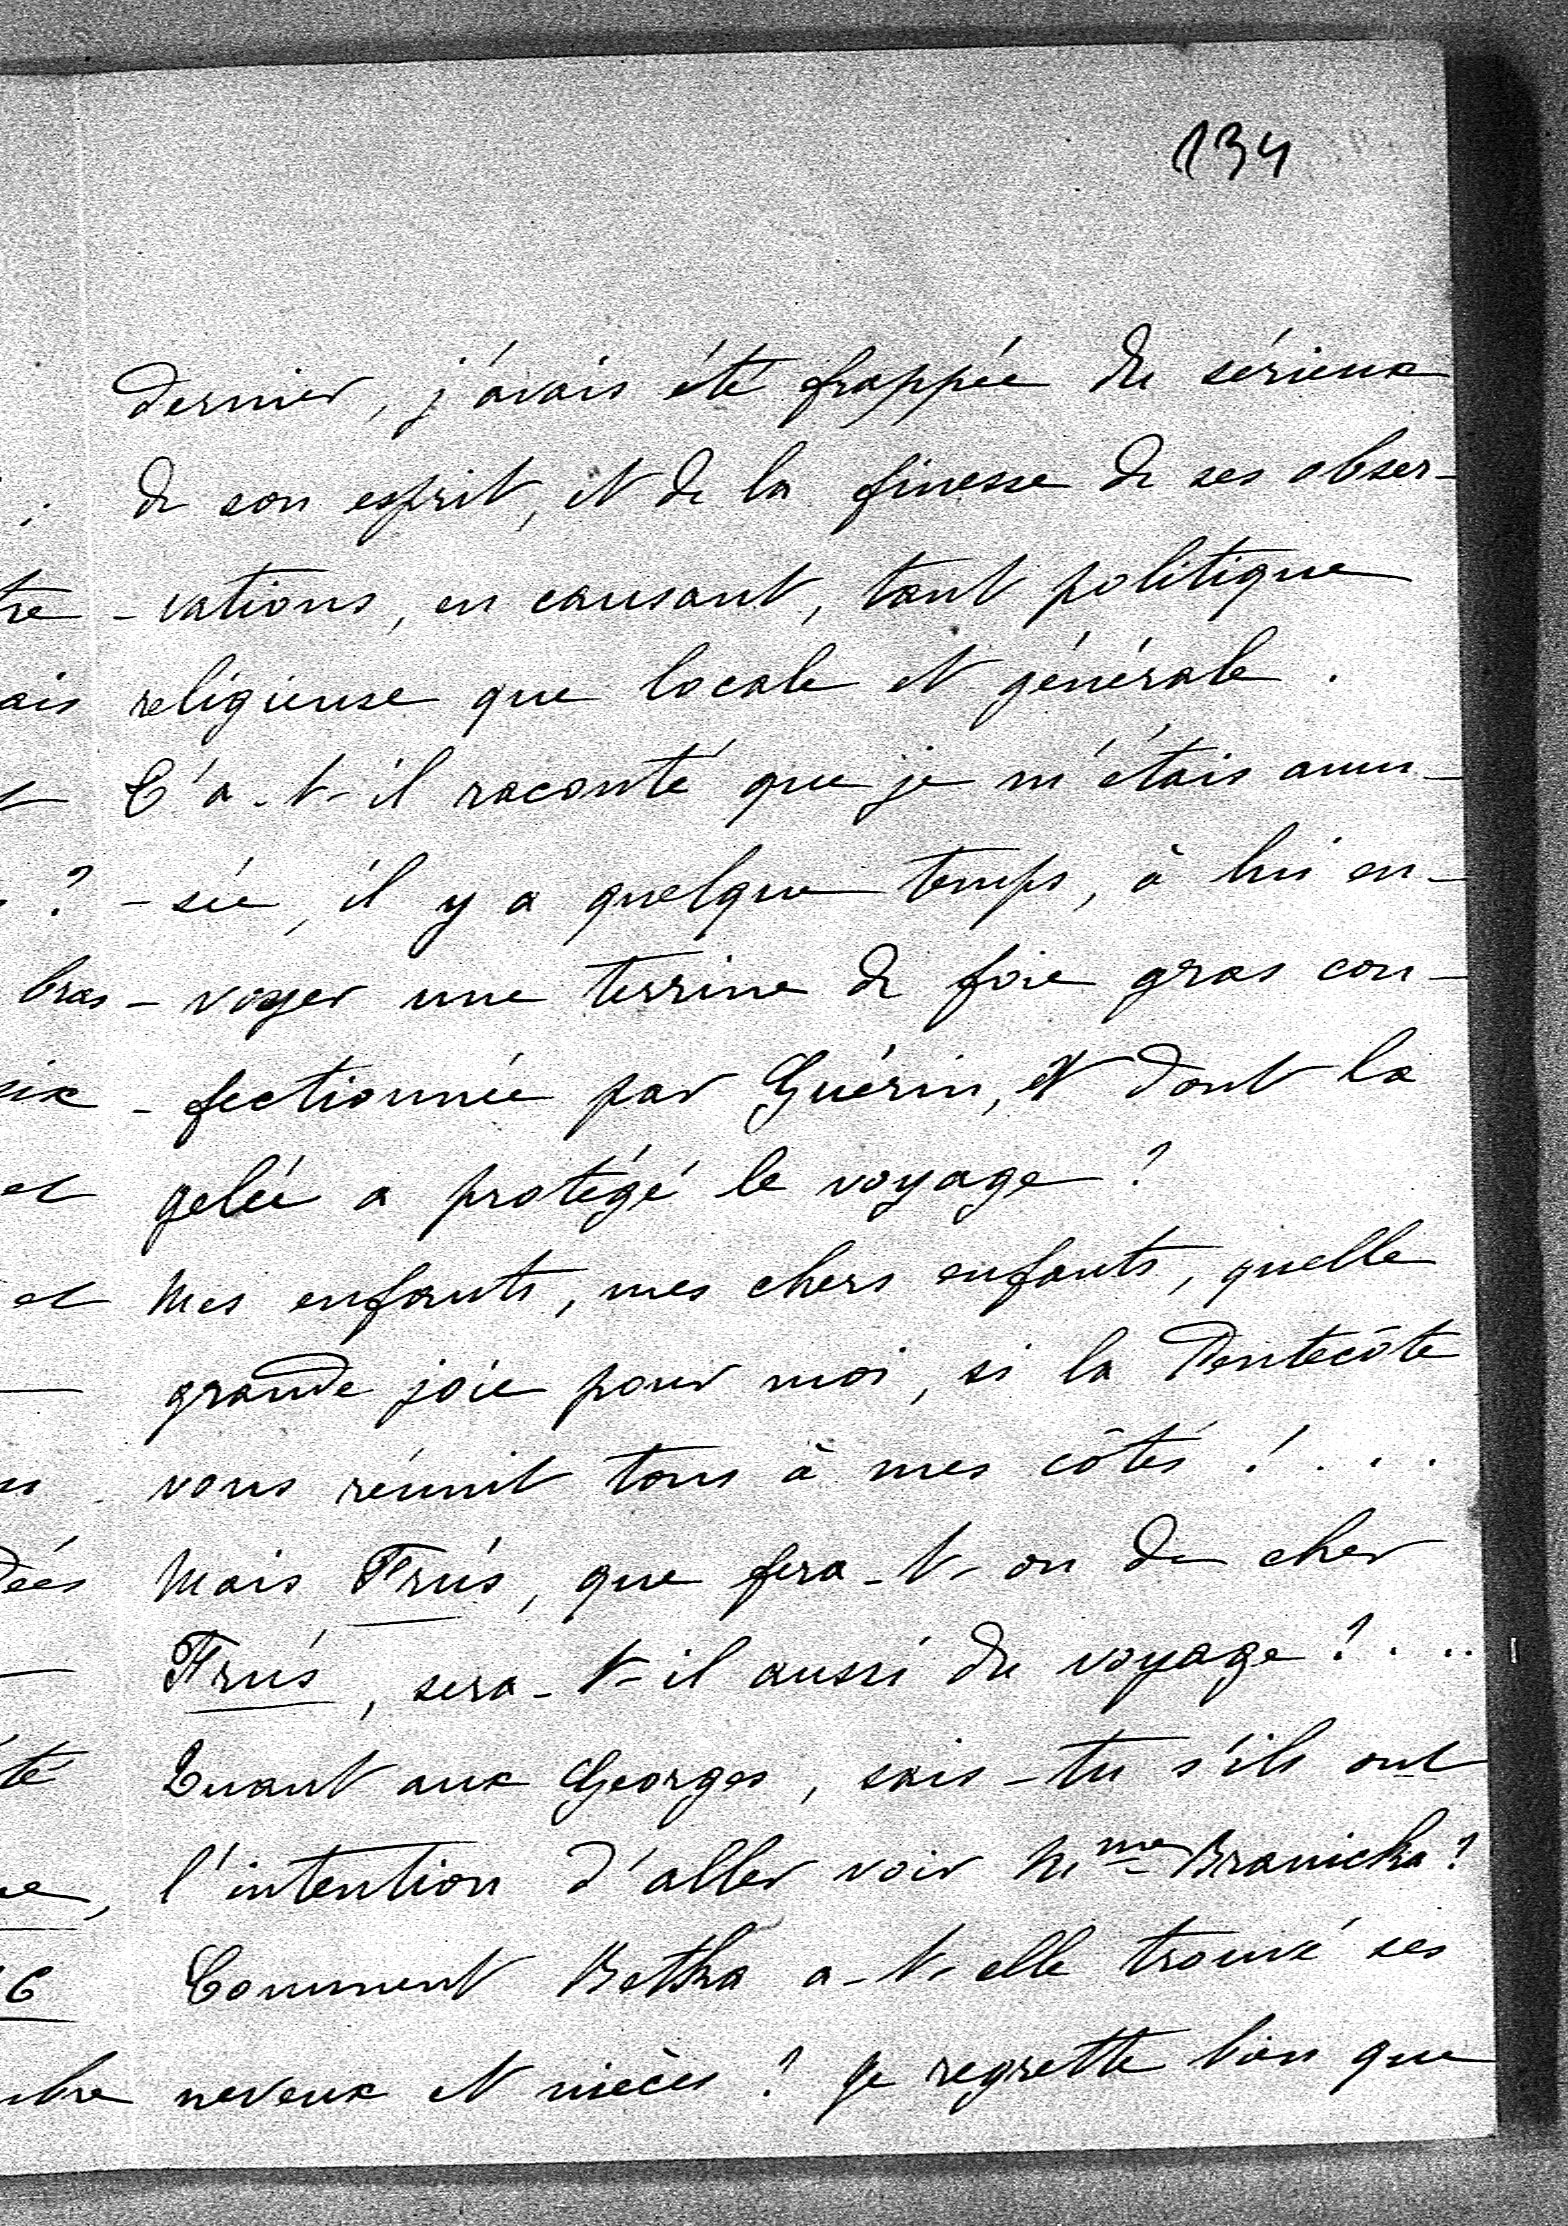 134
dernier, j'avais été frappée du sérieux
de son esprit, et de la finesse de ses obser-
-vations, en causant, tant politique
religieuse que locale et générale.
T'a-t-il raconté que je m'étais amu-
-sée, il y a quelque temps, à lui en-
-voyer une terrine de foie gras con-
-fectionnée par Guérin, et dont la
gelée a protégé le voyage ?
Mes enfants, mes chers enfants, quelle
grande joie pour moi, si la Pentecôte
vous réunit tous à mes côtés !...
Mais Frus, que fera-t-on du cher
Frus, sera-t-il aussi du voyage ?...
Quant aux Georges, sais-tu s'ils ont
l'intention d'aller voir Mme Branicka ?
Comment Betka a-t-elle trouvé ses
neveux et nièces ? Je regrette bien que